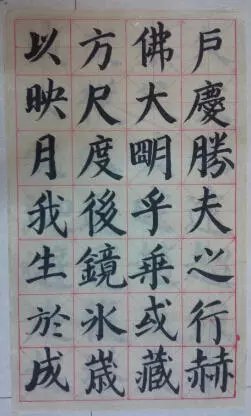 戶慶勝夫之行赫
佛大朙乎乗或藏
方尺度後鏡氷歳
以映月我生於成